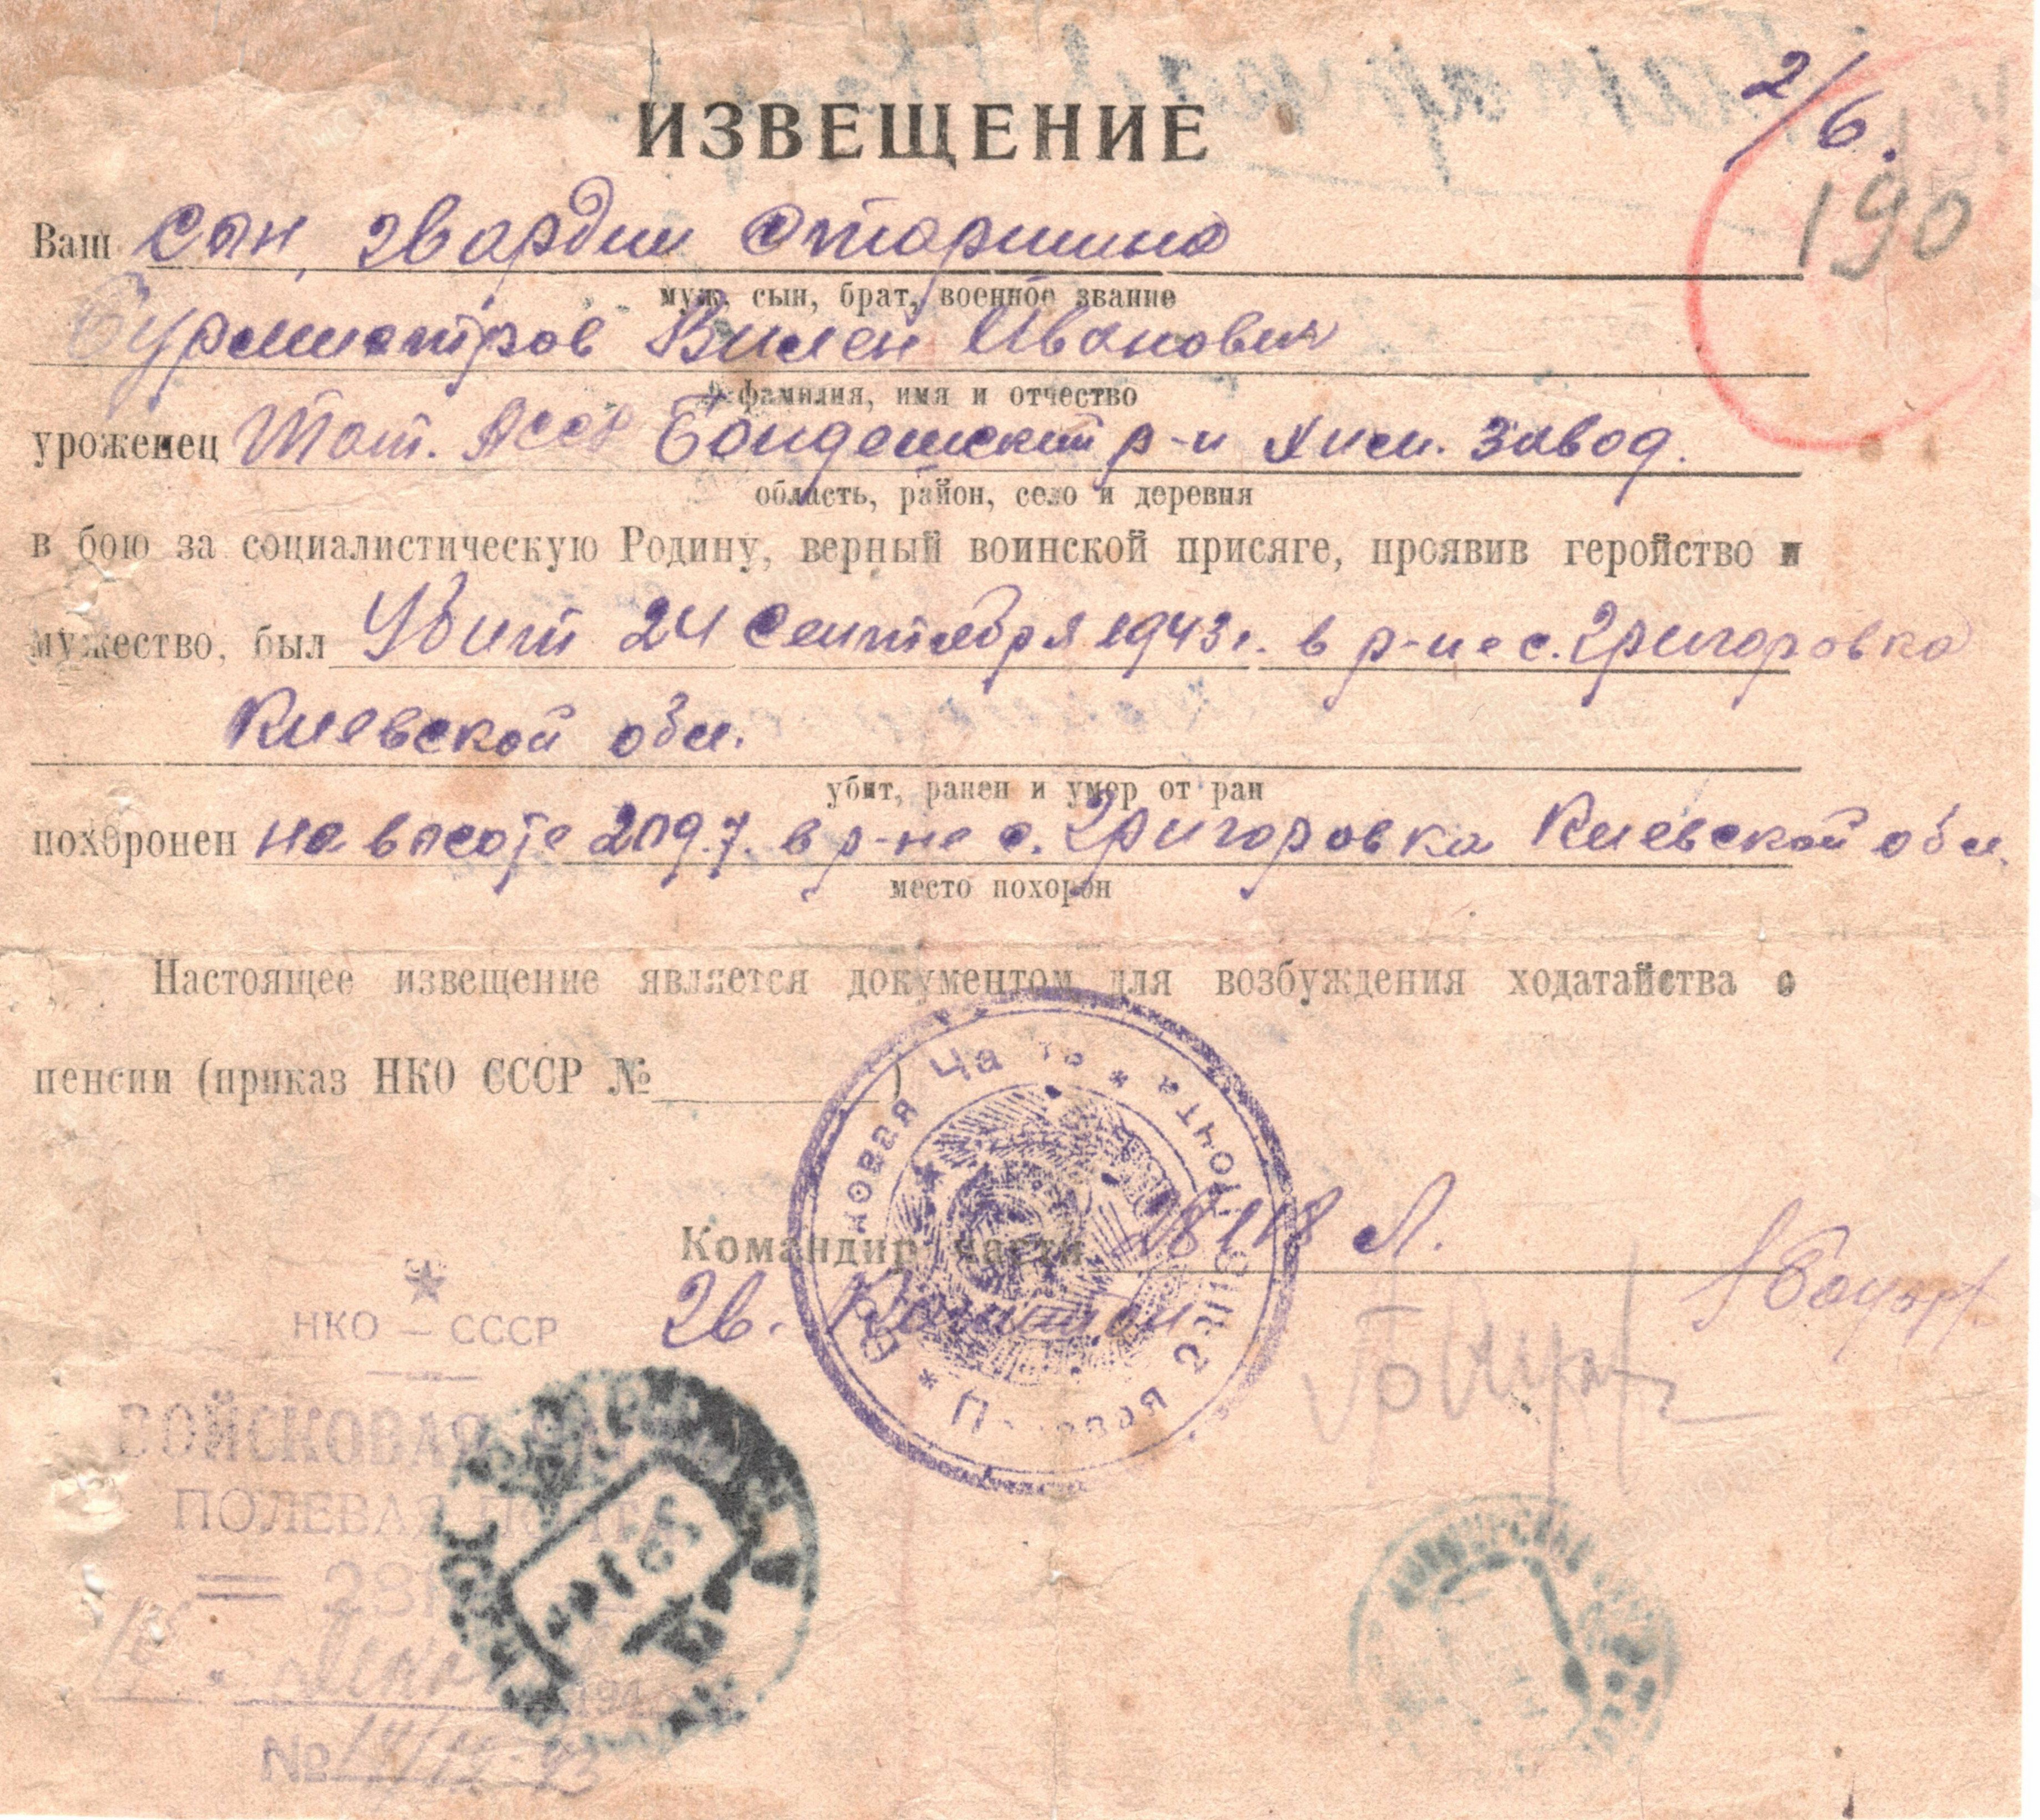 2/6.
190
ИЗВЕЩЕНИЕ
Ваш сын, гвардии старшина
муж, сын, брат, военное звание
Бурмистров Вилен Иванович
фамилия, имя и отчество
уроженец Тат. АССР Бондюжский р-н хим. завод.
область, район, село и деревня
в бою за социалистическую Родину, верный воинской присяге, проявив геройство и
мужество, был Убит 24 сентября 1943 г. в р-не с. Григоровка
Киевской обл.
убит, ранен и умер от ран
похоронен на высоте 209.7. в р-не с. Григоровка Киевской обл.
место похорон
Настоящее извещение является документом для возбуждения ходатайства о
пенсии (приказ НКО СССР № )
Войсковая Часть * Полевая почта *
Командир части Л.
Гв. Капитан
НКО — СССР
ВОЙСКОВАЯ
ПОЛЕВАЯ ПОЧТА
№